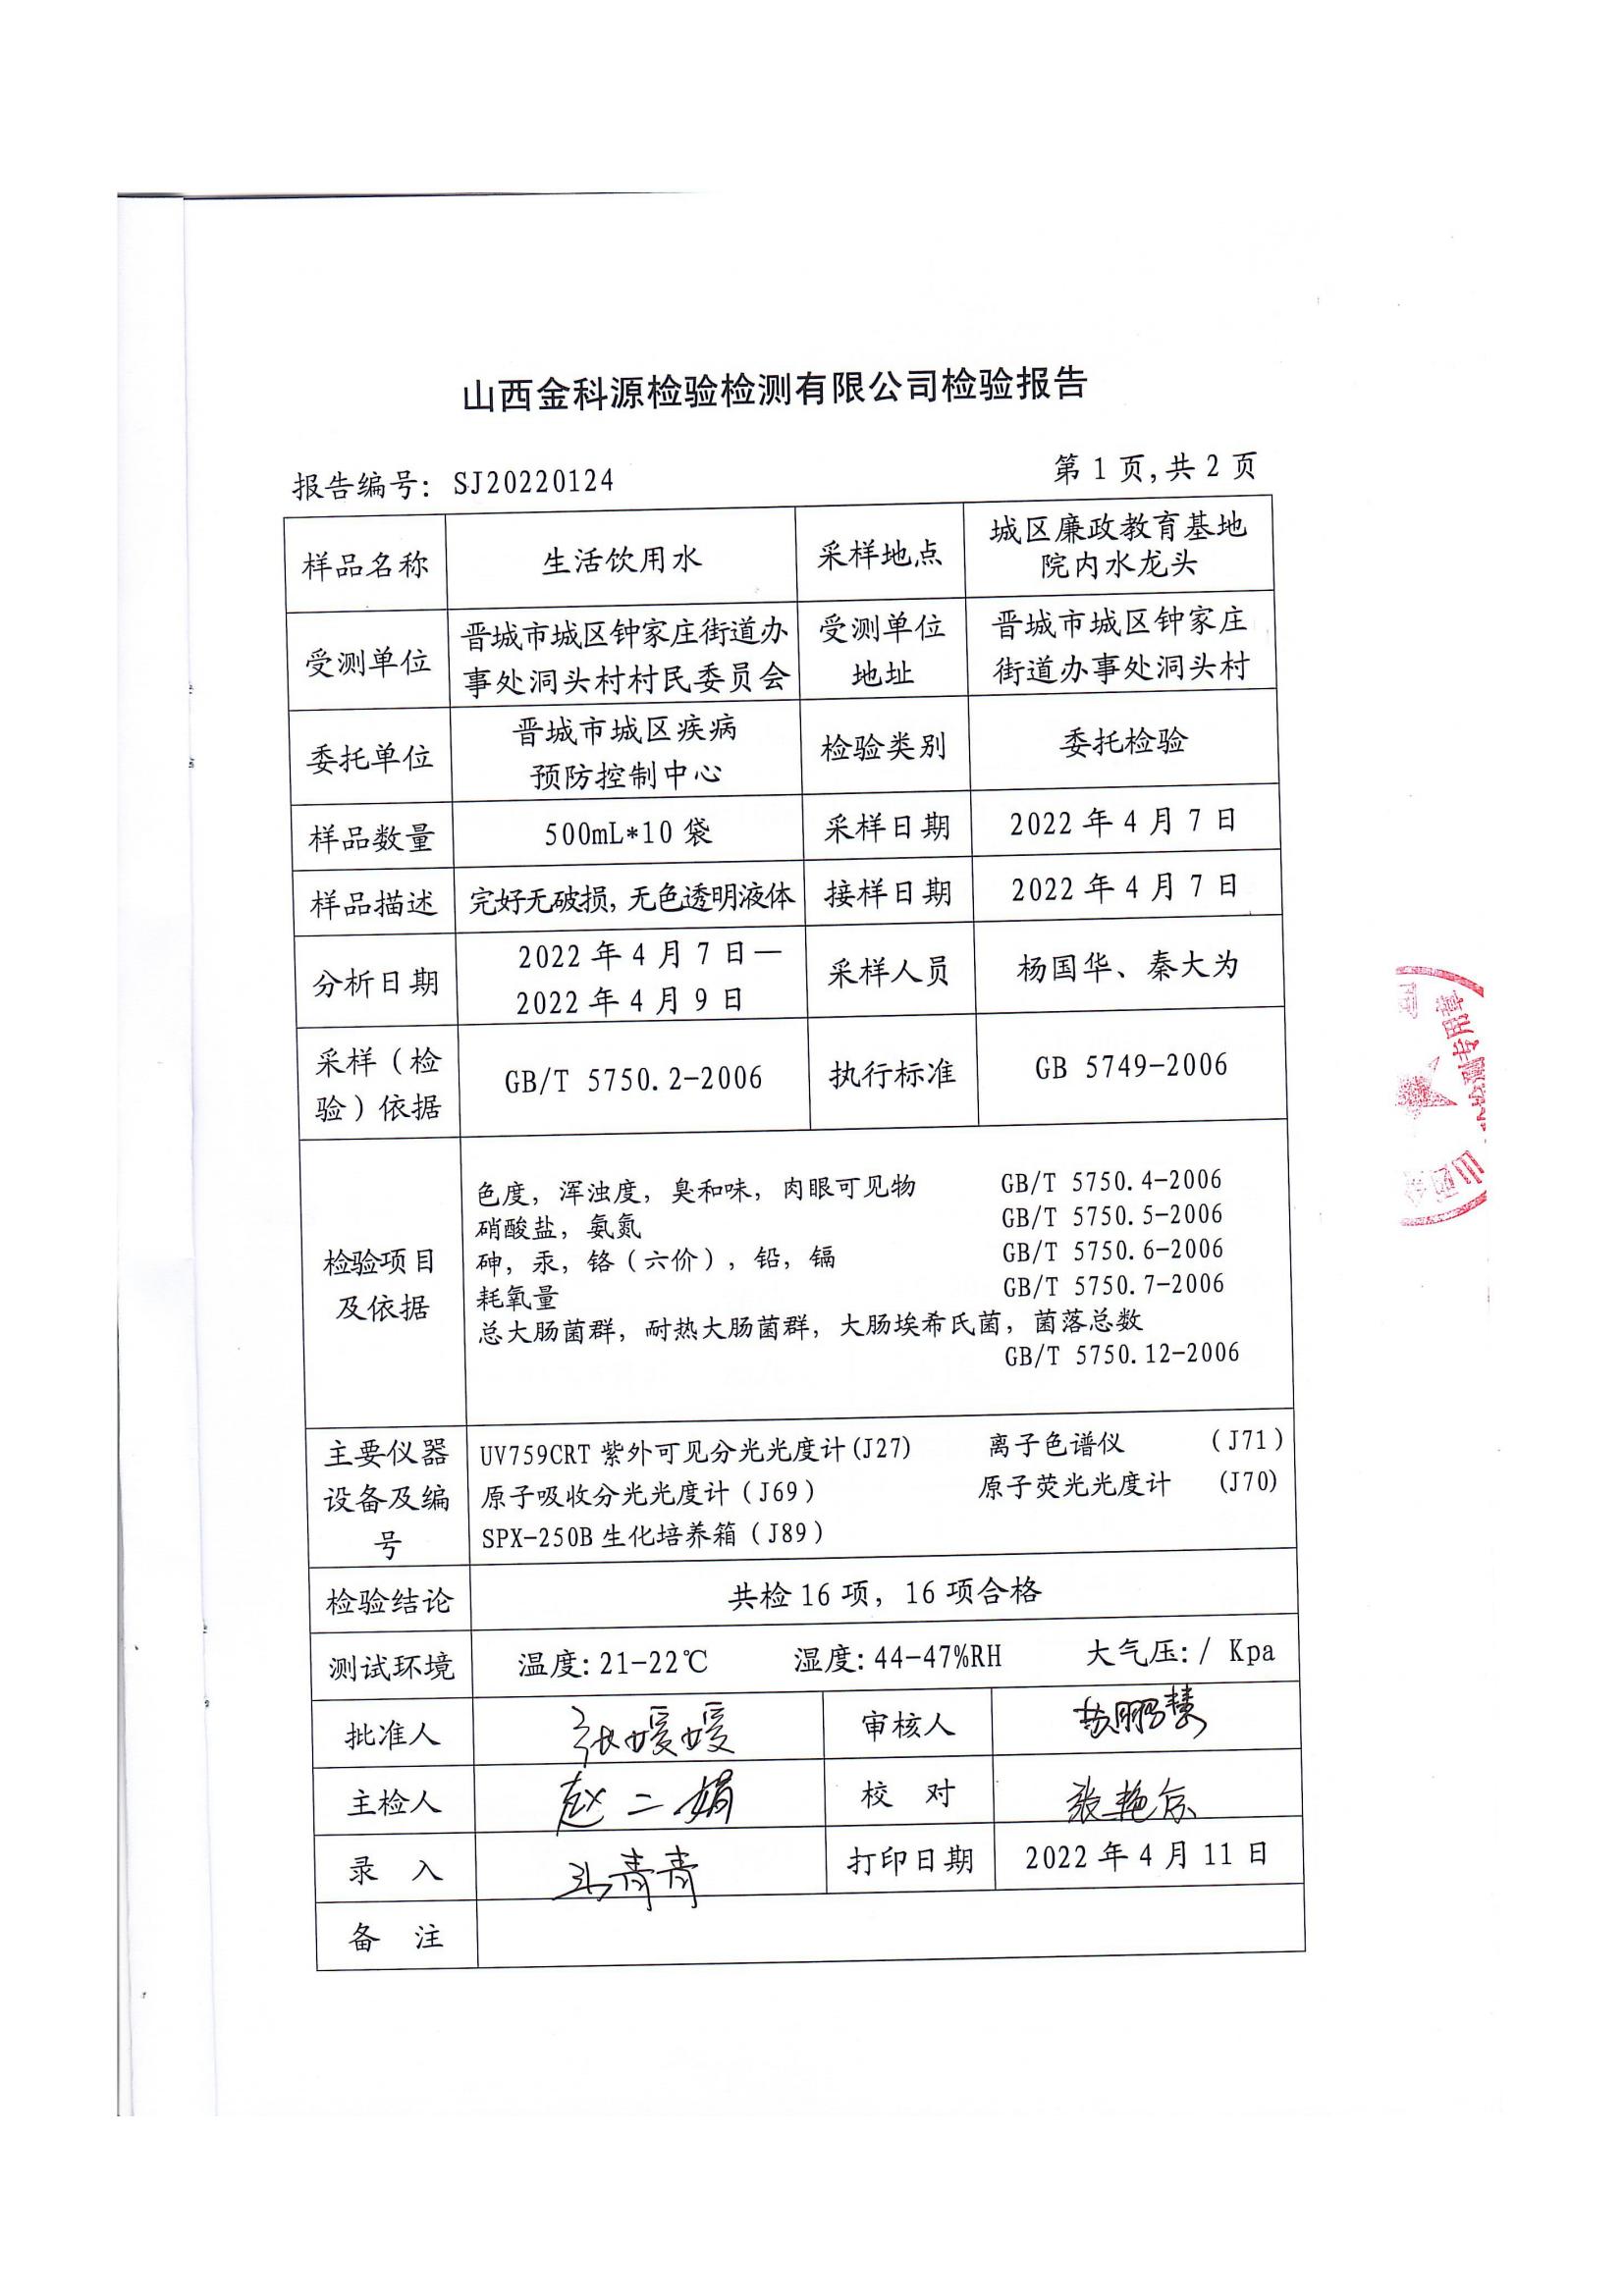 山西金科源检验检测有限公司检验报告
报告编号: SJ20220124
第 1 页,共 2 页
样品名称
生活饮用水
采样地点
城区廉政教育基地
院内水龙头
受测单位
晋城市城区钟家庄街道办
事处洞头村村民委员会
受测单位
地址
晋城市城区钟家庄
街道办事处洞头村
委托单位
晋城市城区疾病
预防控制中心
检验类别
委托检验
样品数量
500mL*10 袋
采样日期
2022 年 4 月 7 日
样品描述
完好无破损, 无色透明液体
接样日期
2022 年 4 月 7 日
分析日期
2022 年 4 月 7 日—
2022 年 4 月 9 日
采样人员
杨国华、秦大为
采样（检
验）依据
GB/T 5750.2-2006
执行标准
GB 5749-2006
检验项目
及依据
色度, 浑浊度, 臭和味, 肉眼可见物 GB/T 5750.4-2006
硝酸盐, 氨氮 GB/T 5750.5-2006
砷, 汞, 铬（六价）, 铅, 镉 GB/T 5750.6-2006
耗氧量 GB/T 5750.7-2006
总大肠菌群, 耐热大肠菌群, 大肠埃希氏菌, 菌落总数
GB/T 5750.12-2006
主要仪器
设备及编
号
UV759CRT 紫外可见分光光度计(J27) 离子色谱仪 (J71)
原子吸收分光光度计(J69) 原子荧光光度计 (J70)
SPX-250B 生化培养箱(J89)
检验结论
共检 16 项, 16 项合格
测试环境
温度: 21-22℃ 湿度: 44-47%RH 大气压: / Kpa
批准人
张媛媛
审核人
主检人
赵二娟
校 对
录 入
青青
打印日期
2022 年 4 月 11 日
备 注
检测专用章
山西金